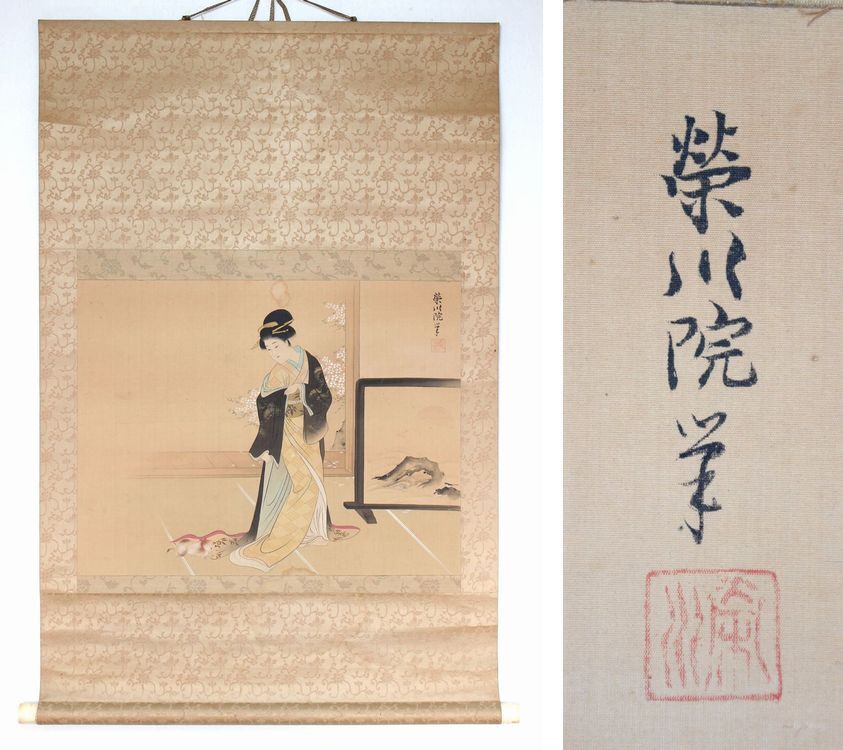 榮川院筆
榮川院筆
榮川